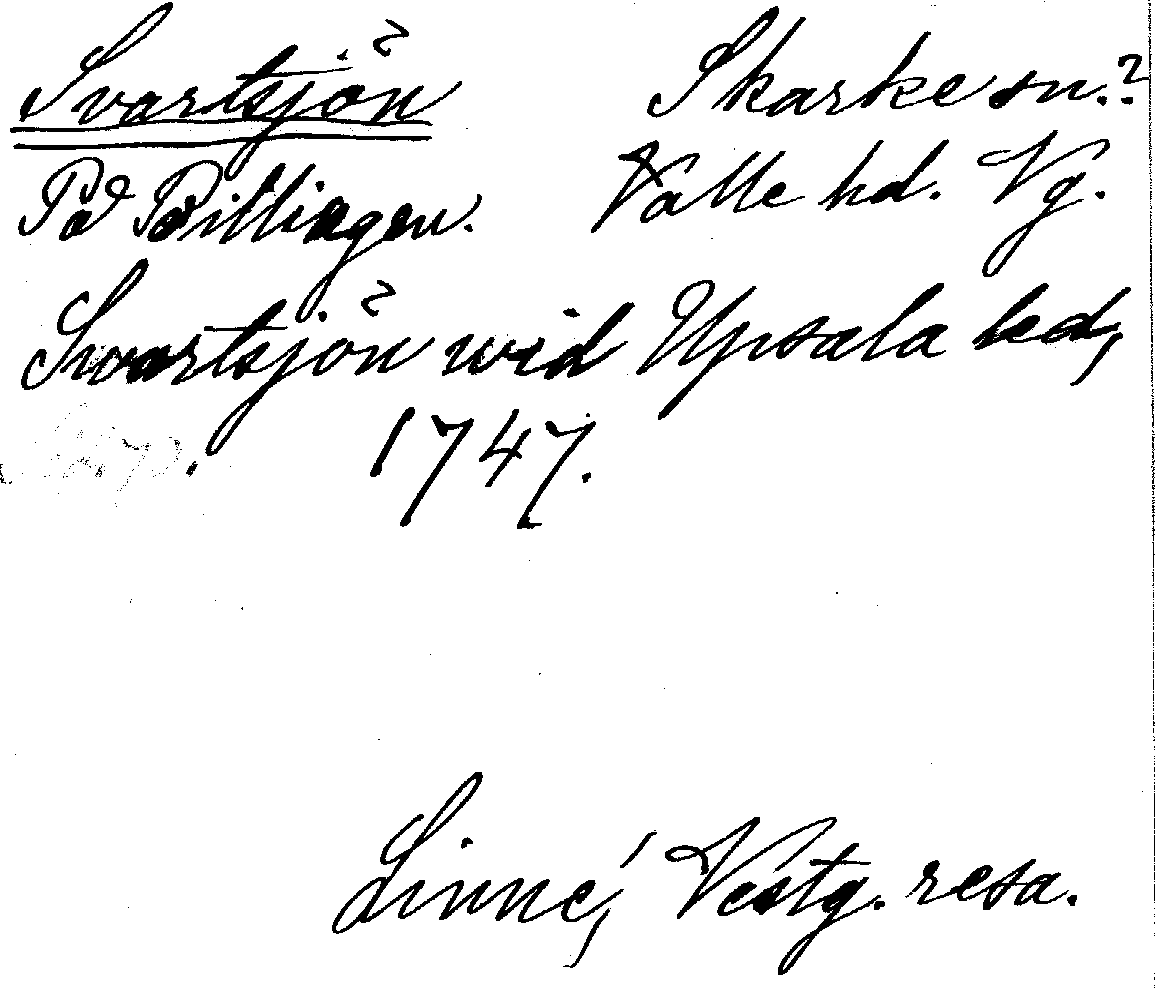 Svartsjön Skarke sn.?
På Billingen. Valle hd. Vg.
Swartsjön wid Upsala led,
1747.
Linné, Vestg. resa.